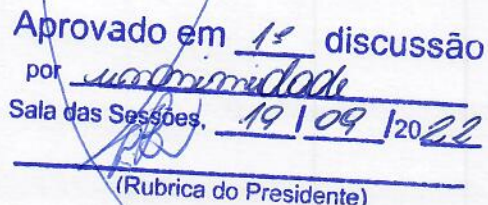 Aprovado em 1ª discussão
por unanimidade
Sala das Sessões, 19 / 09 / 2022
(Rubrica do Presidente)